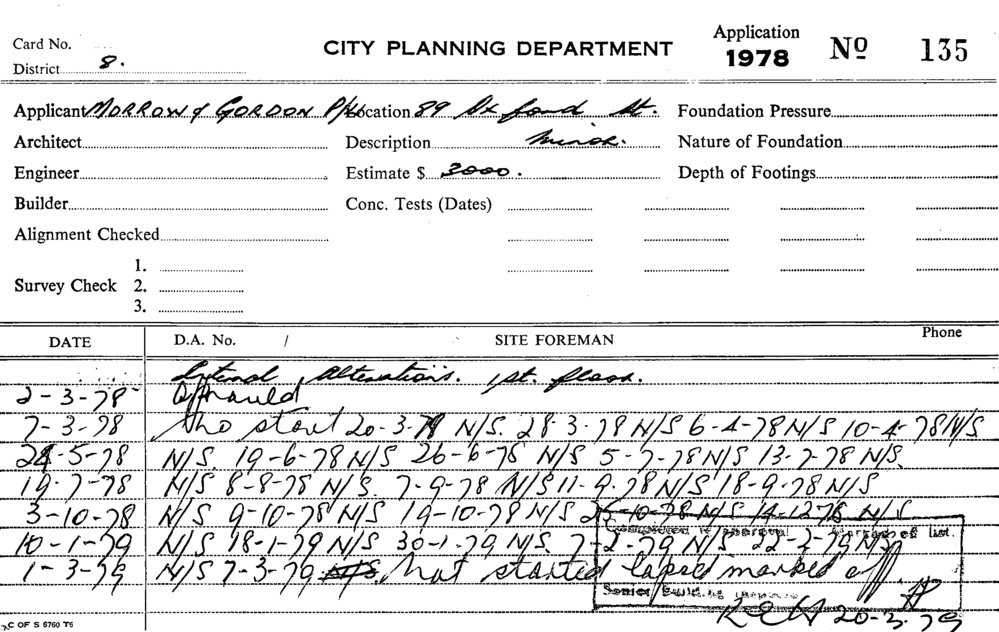 Card No.
CITY PLANNING DEPARTMENT
Application
1978 No 135
District 8.
Applicant MORROW & GORDON P/L Location 89 Oxford St. Foundation Pressure
Architect Description Minor. Nature of Foundation
Engineer Estimate $ 3000. Depth of Footings
Builder Conc. Tests (Dates)
Alignment Checked
1.
Survey Check 2.
3.
DATE D.A. No. / SITE FOREMAN Phone
Internal Alterations. 1st. floor.
2-3-78 Approved
7-3-78 No start 20-3-78 N/S. 28-3-78 N/S 6-4-78 N/S 10-4-78 N/S
24-5-78 N/S. 19-6-78 N/S 26-6-78 N/S 5-7-78 N/S 13-7-78 N/S.
19-7-78 N/S 8-8-78 N/S. 7-9-78 N/S 11-9-78 N/S 18-9-78 N/S
3-10-78 N/S 9-10-78 N/S 19-10-78 N/S -10-78 N/S 14-12-78 N/S
10-1-79 N/S 18-1-79 N/S 30-1-79 N/S. 7-2-79 N/S 22-2-79 N/S
1-3-79 N/S 7-3-79 N/S. Not started lapsed marked off.
Senior Building
20-3-79
C OF S 5760 T6